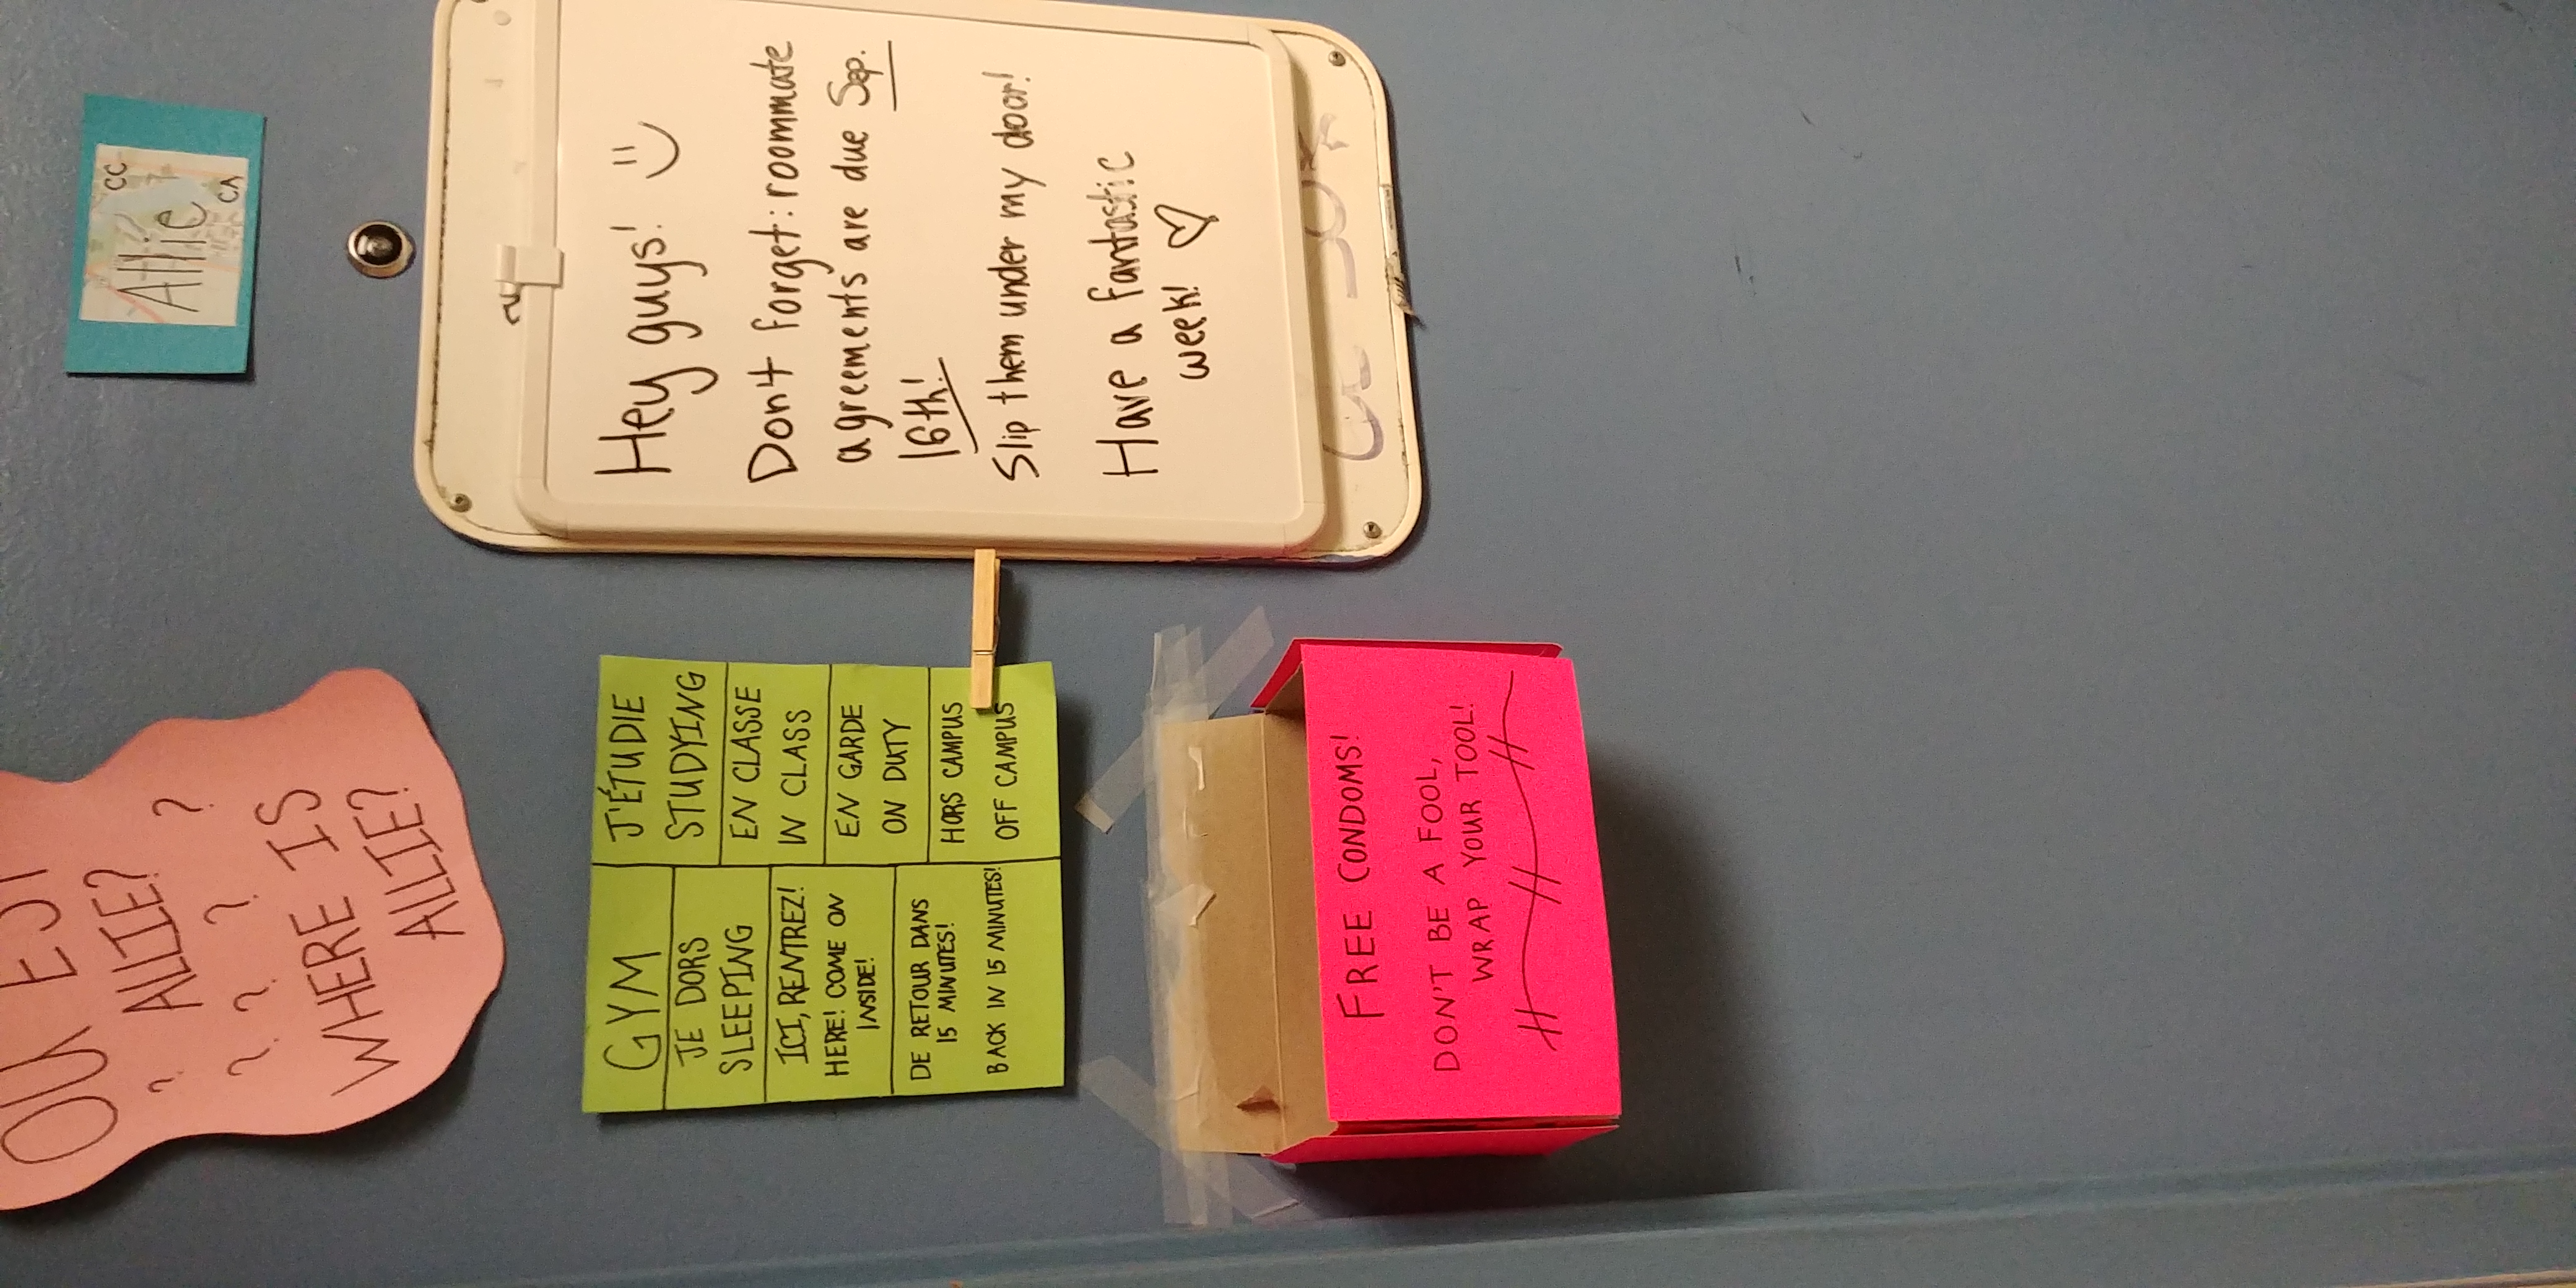 Allie
CC
CA
Hey guys! :)
Don't forget: roommate
agreements are due Sep.
16th!
Slip them under my door!
Have a fantastic
week! ♡
OÙ EST
ALLIE?
?
?
?
?
?
WHERE IS
ALLIE?
GYM
JE DORS
SLEEPING
ICI, RENTREZ!
HERE! COME ON
INSIDE!
DE RETOUR DANS
15 MINUTES!
BACK IN 15 MINUTES!
J'ÉTUDIE
STUDYING
EN CLASSE
IN CLASS
EN GARDE
ON DUTY
HORS CAMPUS
OFF CAMPUS
FREE CONDOMS!
DON'T BE A FOOL,
WRAP YOUR TOOL!